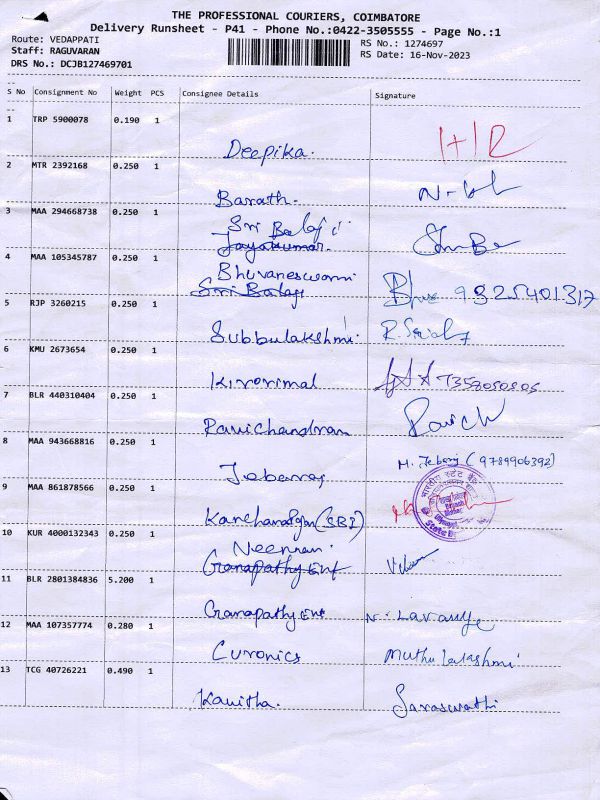 THE PROFESSIONAL COURIERS, COIMBATORE
Delivery Runsheet - P41 - Phone No.:0422-3505555 - Page No.:1
Route: VEDAPPATI
RS No.: 1274697
Staff: RAGUVARAN
RS Date: 16-Nov-2023
DRS No.: DCJB127469701
S No Consignment No Weight PCS Consignee Details Signature
1 TRP 5900078 0.190 1
Deepika.
2 MTR 2392168 0.250 1
Barath.
3 MAA 294668738 0.250 1
Sri Balaji
Jayakumar.
4 MAA 105345787 0.250 1
Bhuvaneswarri
Sri Balaji
9325401317
5 RJP 3260215 0.250 1
Subbulakshmi
6 KMU 2673654 0.250 1
Kirorimal
7358050505
7 BLR 440310404 0.250 1
Ravichandran
Ravich
8 MAA 943668816 0.250 1
Jebaraj
M. Jebaraj (9789906392)
9 MAA 861878566 0.250 1
(SBI)
भारतीय स्टेट बैंक
State B
10 KUR 4000132343 0.250 1
Ganapathy Ent
11 BLR 2801384836 5.200 1
Ganapathy Ent
N. Lavanye
12 MAA 107357774 0.280 1
Curonics
Muthulakshmi
13 TCG 40726221 0.490 1
Kavitha.
Saraswathi